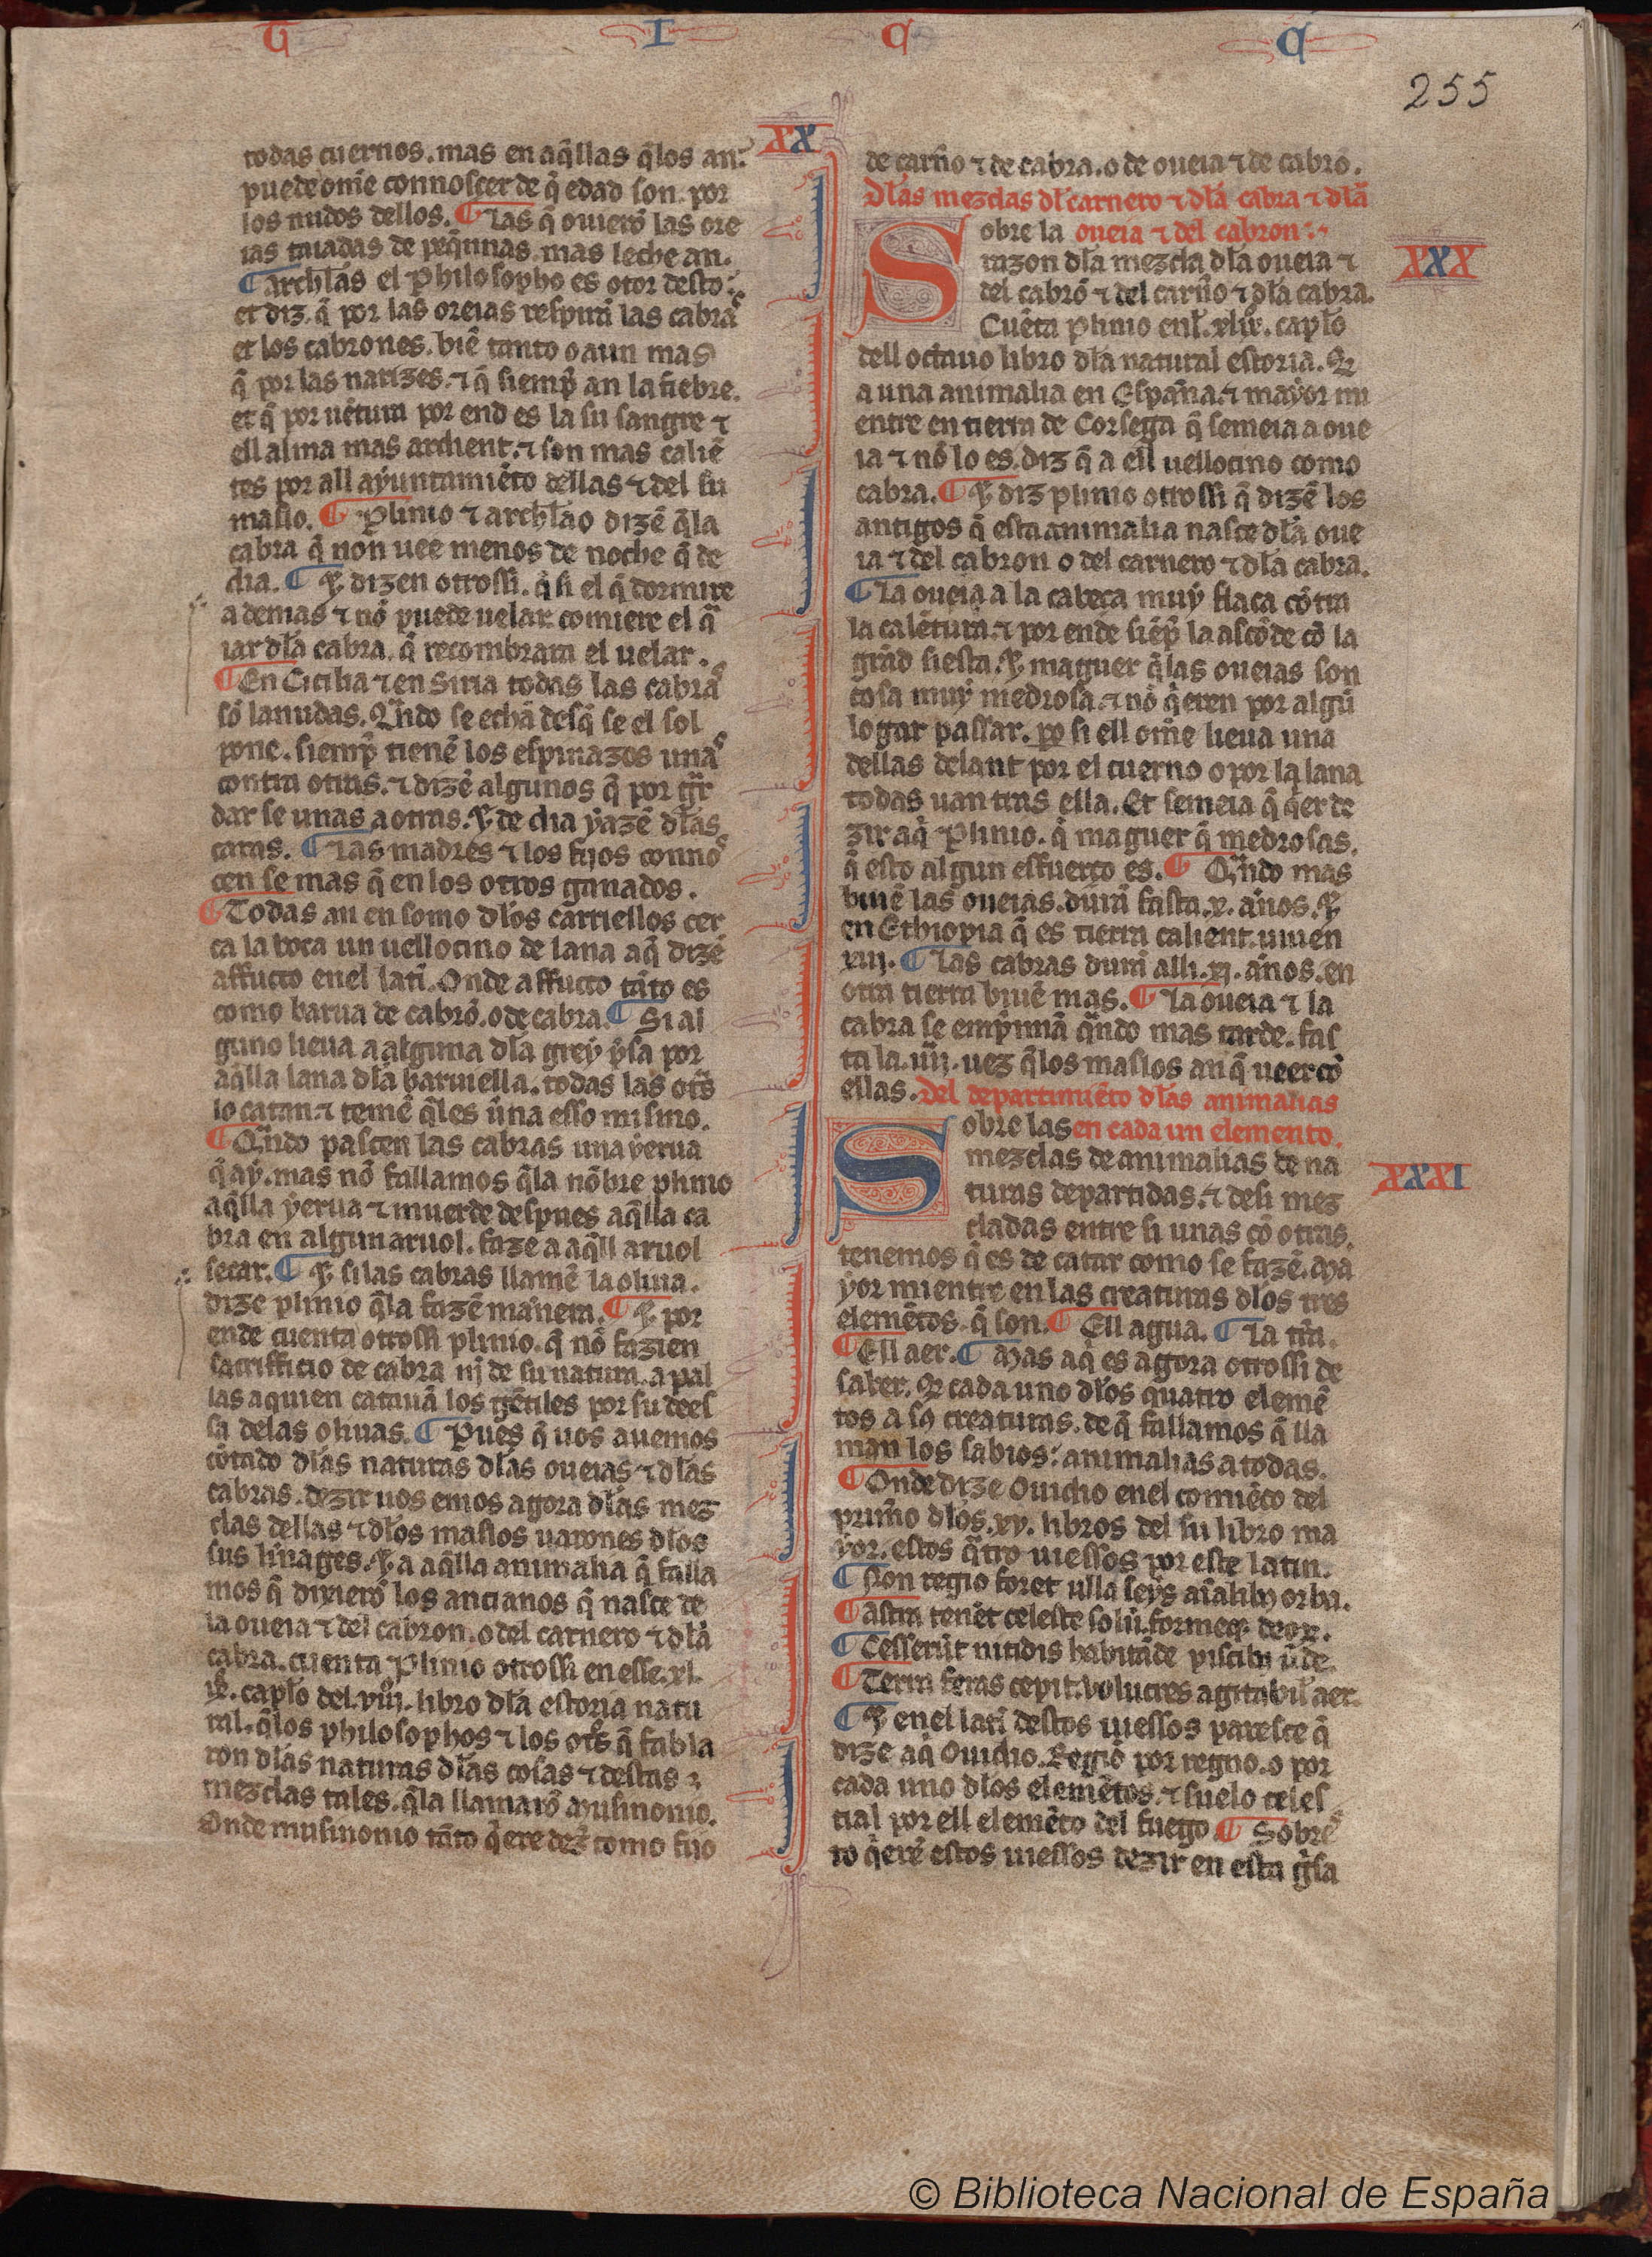 G I C C
255
XX
todas cuernos. mas en aq̃llas q̃los an.
puede om̃e connosçer de q̃ edad son. por
los nudos dellos. ¶ Las q̃ ouierõ las ore
ias taiadas de peq̃nnas. mas leche an.
¶ Archl̃as el philosopho es otor desto.
et diz. q̃ por las oreias respirã las cabras
et los cabrones. biẽ tanto o aun mas
q̃ por las narizes. ⁊ q̃ siemp̃ an la fiebre.
et q̃ por uẽtura por end es la su sangre ⁊
ell alma mas ardient. ⁊ son mas caliẽ
tes por all ayuntamiẽto dellas ⁊ del su
maslo. ¶ Plinio ⁊ archl̃ao dizẽ q̃la
cabra q̃ non uee menos de noche q̃ de
dia. ¶ ⁊ dizen otrossi. q̃ si el q̃ dormire
ademas ⁊ nõ puede uelar. comiere el q̃
iar dl̃a cabra. q̃ recombrara el uelar.
¶ En Cicilia ⁊ en Siria todas las cabras
sõ lanudas. Q̃ndo se echã desq̃ se el sol
pone. siemp̃ tienẽ los espinazos unas
contra otras. ⁊ dizẽ algunos q̃ por g̃r
dar se unas a otras. ⁊ de dia yazẽ dl̃as
caras. ¶ Las madres ⁊ los fijos connos
cen se mas q̃ en los otros ganados.
¶ Todas an en somo dl̃os carriellos cer
ca la boca un uellocino de lana a q̃ dizẽ
affucto enel latĩ. Onde affucto tãto es
como barua de cabrõ. o de cabra. ¶ Si al
guno lieua a alguna dl̃a grey ysa por
aq̃lla lana dl̃a baruiella. todas las otrs̃
lo catan. ⁊ temẽ q̃les uẽna esso mismo.
¶ Q̃ndo pascen las cabras una yerua
q̃ ay. mas nõ fallamos q̃la nõbre plinio
aq̃lla yerua ⁊ muerde despues aq̃lla ca
bra en algun aruol. faze a aq̃ll aruol
secar. ¶ ⁊ si las cabras llamẽ la oliua.
dize plinio q̃la fazẽ mañera. ¶ ⁊ por
ende cuenta otrossi plinio. q̃ nõ fazien
sacrifficio de cabra nj de su natura. a pal
las a quien catauã los gẽtiles por su dees
sa delas oliuas. ¶ Pues q̃ uos auemos
cõtado dl̃as naturas dl̃as oueias ⁊ dl̃as
cabras. dezir uos emos agora dl̃as mez
clas dellas ⁊ dl̃os maslos uarones dl̃os
sus linages. ⁊ a aq̃lla animalia q̃ falla
mos q̃ dixierõ los ancianos q̃ nasce de
la oueia ⁊ del cabron. o del carnero ⁊ dl̃a
cabra. cuenta Plinio otrossi en esse. xl.
ix. capl̃o del. viij. libro dl̃a estoria natu
ral. q̃los philosophos ⁊ los otrs̃ q̃ fabla
ron dl̃as naturas dl̃as cosas ⁊ destas
mezclas tales. q̃la llamarõ musinonio.
Onde musinonio tãto q̃ere dez̃ como fijo
de carñо ⁊ de cabra. o de oueia ⁊ de cabrõ.
Dl̃as mezclas dl̃ carnero ⁊ dl̃a cabra ⁊ dl̃a
Sobre la oueia ⁊ del cabron.
XXX
razon dl̃a mezcla dl̃a oueia ⁊
del cabrõ ⁊ del carño ⁊ dl̃a cabra.
Cuẽta plinio enl̃. xlix. capl̃o
dell octauo libro dl̃a natural estoria. Q̃
a una animalia en Espanna. ⁊ mayor mi
entre en tierra de Corsega q̃ semeia a oue
ia ⁊ nõ lo es. diz q̃ a ell uellocino como
cabra. ¶ ⁊ diz plinio otrossi q̃ dizẽ los
antigos q̃ esta animalia nasce dl̃a oue
ia ⁊ del cabron o del carnero ⁊ dl̃a cabra.
¶ La oueia a la cabeça muy flaca cõtra
la calẽtura. ⁊ por ende siẽp̃ la ascõde cõ la
grãd siesta. ⁊ maguer q̃las oueias son
cosa muy medrosa. ⁊ nõ q̃eren por algũ
logar passar. po si ell om̃e lieua una
dellas delant por el cuerno o por la lana
todas uan tras ella. Et semeia q̃ q̃er de
zir aq̃ Plinio. q̃ maguer q̃ medrosas.
q̃ esto algun esfuerço es. ¶ Q̃ndo mas
biuẽ las oueias. durã fasta. x. años. ⁊
en Ethiopia q̃ es tierra calient. uiuen
xiij. ¶ Las cabras durã alli. xj. años. en
otra tierra biuẽ mas. ¶ La oueia ⁊ la
cabra se emprennã q̃ndo mas tarde. fas
ta la. iiij. uez q̃los maslos an q̃ ueer cõ
ellas. Del departimiẽto dl̃as animalias
Sobre las en cada un elemento.
mezclas de animalias de na
XXXI
turas departidas. ⁊ desi mez
cladas entre si unas cõ otras.
tenemos q̃ es de catar como se fazẽ. Ma
yor mientre en las creaturas dlos tres
elemẽtos. q̃ son. ¶ Ell agua. ¶ La trr̃a.
¶ Ell aer. ¶ Mas aq̃ es agora otrossi de
saber. Q̃ cada uno dl̃os quatro elemẽ
tos a sꝯ creaturas. de q̃ fallamos q̃ lla
man los sabios: animalias a todas.
¶ Onde dize Ouidio enel comiẽço del
prim̃o dl̃os. xv. libros del su libro ma
yor. estos q̃tro uiessos por este latin.
¶ Non regio foret ulla seys aĩalibꝯ orba.
¶ Astra tenẽt celeste solũ. formeqꝫ deoꝝ.
¶ Cesserũt nitidis habitãde piscibꝯ ũde.
¶ Terra feras cepit. uolucres agitabil̃ aer.
¶ ⁊ enel latĩ destos uiessos paresce q̃
dize aq̃ Ouidio. Regiõ por regno. o por
cada uno dl̃os elemẽtos. ⁊ suelo celes
tial por ell elemẽto del fuego. ¶ Sobre
to q̃erẽ estos uiessos dezir en esta g̃sa
© Biblioteca Nacional de España